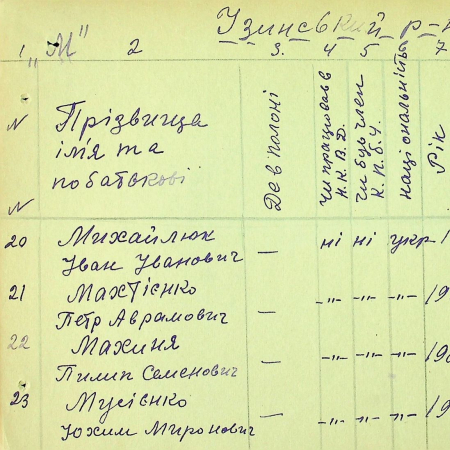 Узинський р-н
1 "М" 2 3. 4 5 6 7
N Прізвища
ім'я та
побатькові
N
Де в полоні
Чи працював в Н.К.В.Д.
Чи був член К.П.б.У.
національність
Рік
20 Михайлюк — ні ні укр 1
Іван Іванович
21 Махтієнко — -"- -"- -"- 19
Петр Аврамович
22 Махиня — -"- -"- -"- 19
Пилип Семенович
23 Мусієнко — -"- -"- -"- 19
Юхим Миронович